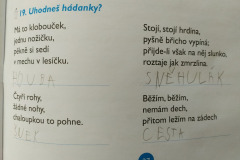 19. Uhodneš hádanky?
Má to klobouček,
jednu nožičku,
pěkně si sedí
v mechu v lesíčku.
HOUBA
Čtyři rohy,
žádné nohy,
chaloupkou to pohne.
ŠNEK
Stojí, stojí hrdina,
pyšně břicho vypíná;
přijde-li však na něj slunko,
roztaje jak zmrzlina.
SNĚHULÁK
Běžím, běžím,
nemám dech,
přitom ležím na zádech
CESTA